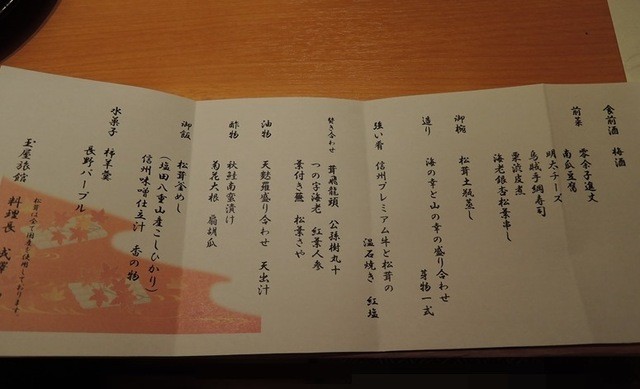 食前酒 梅酒
前菜 零余子進丈
南瓜豆腐
明太チーズ
烏賊手綱寿司
栗渋皮煮
海老銀杏松葉串し
御椀 松茸土瓶蒸し
造り 海の幸と山の幸の盛り合わせ
芽物一式
強い肴 信州プレミアム牛と松茸の
温石焼き 紅塩
焚き合わせ 茸飛龍頭 公孫樹丸十
つの字海老 紅葉人参
葉付き蕪 松葉さや
油物 天麩羅盛り合わせ 天出汁
酢物 秋鮭南蛮漬け
菊花大根 扇胡瓜
御飯 松茸釜めし
(塩田八重山産こしひかり)
信州味噌仕立汁 香の物
水菓子 柿羊羹
長野パープル
松茸は全て国産を使用しております。
玉屋旅館
料理長